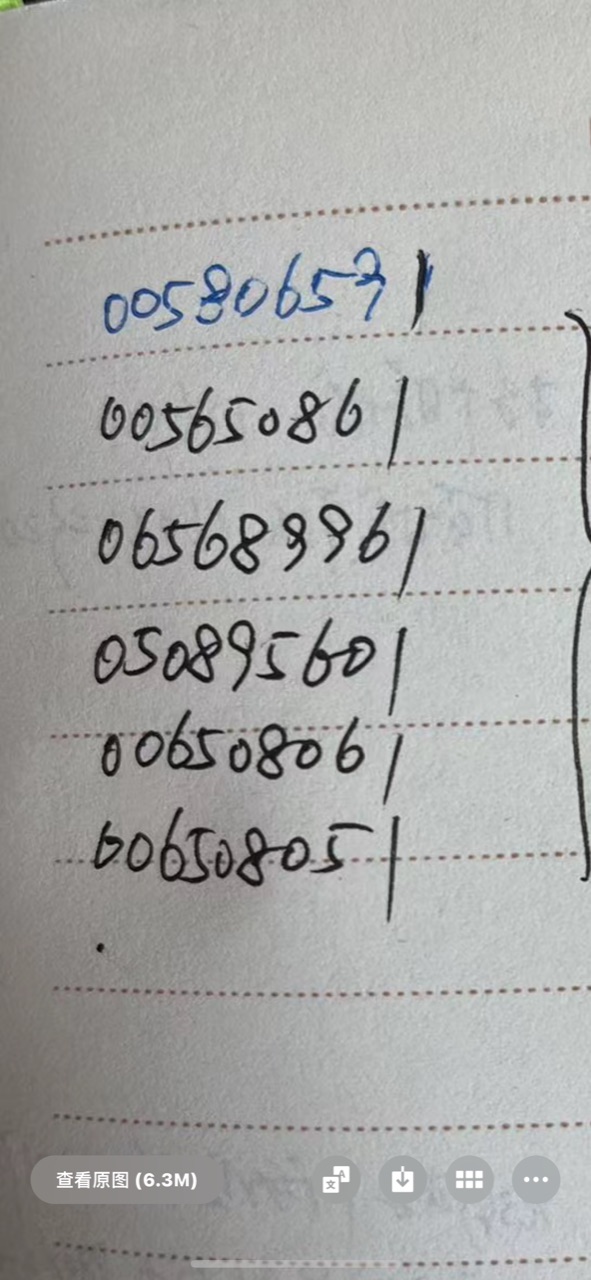 00580653|
00565086|
065689996|
05089560|
00650806|
00650805|
.
查看原图 (6.3M)